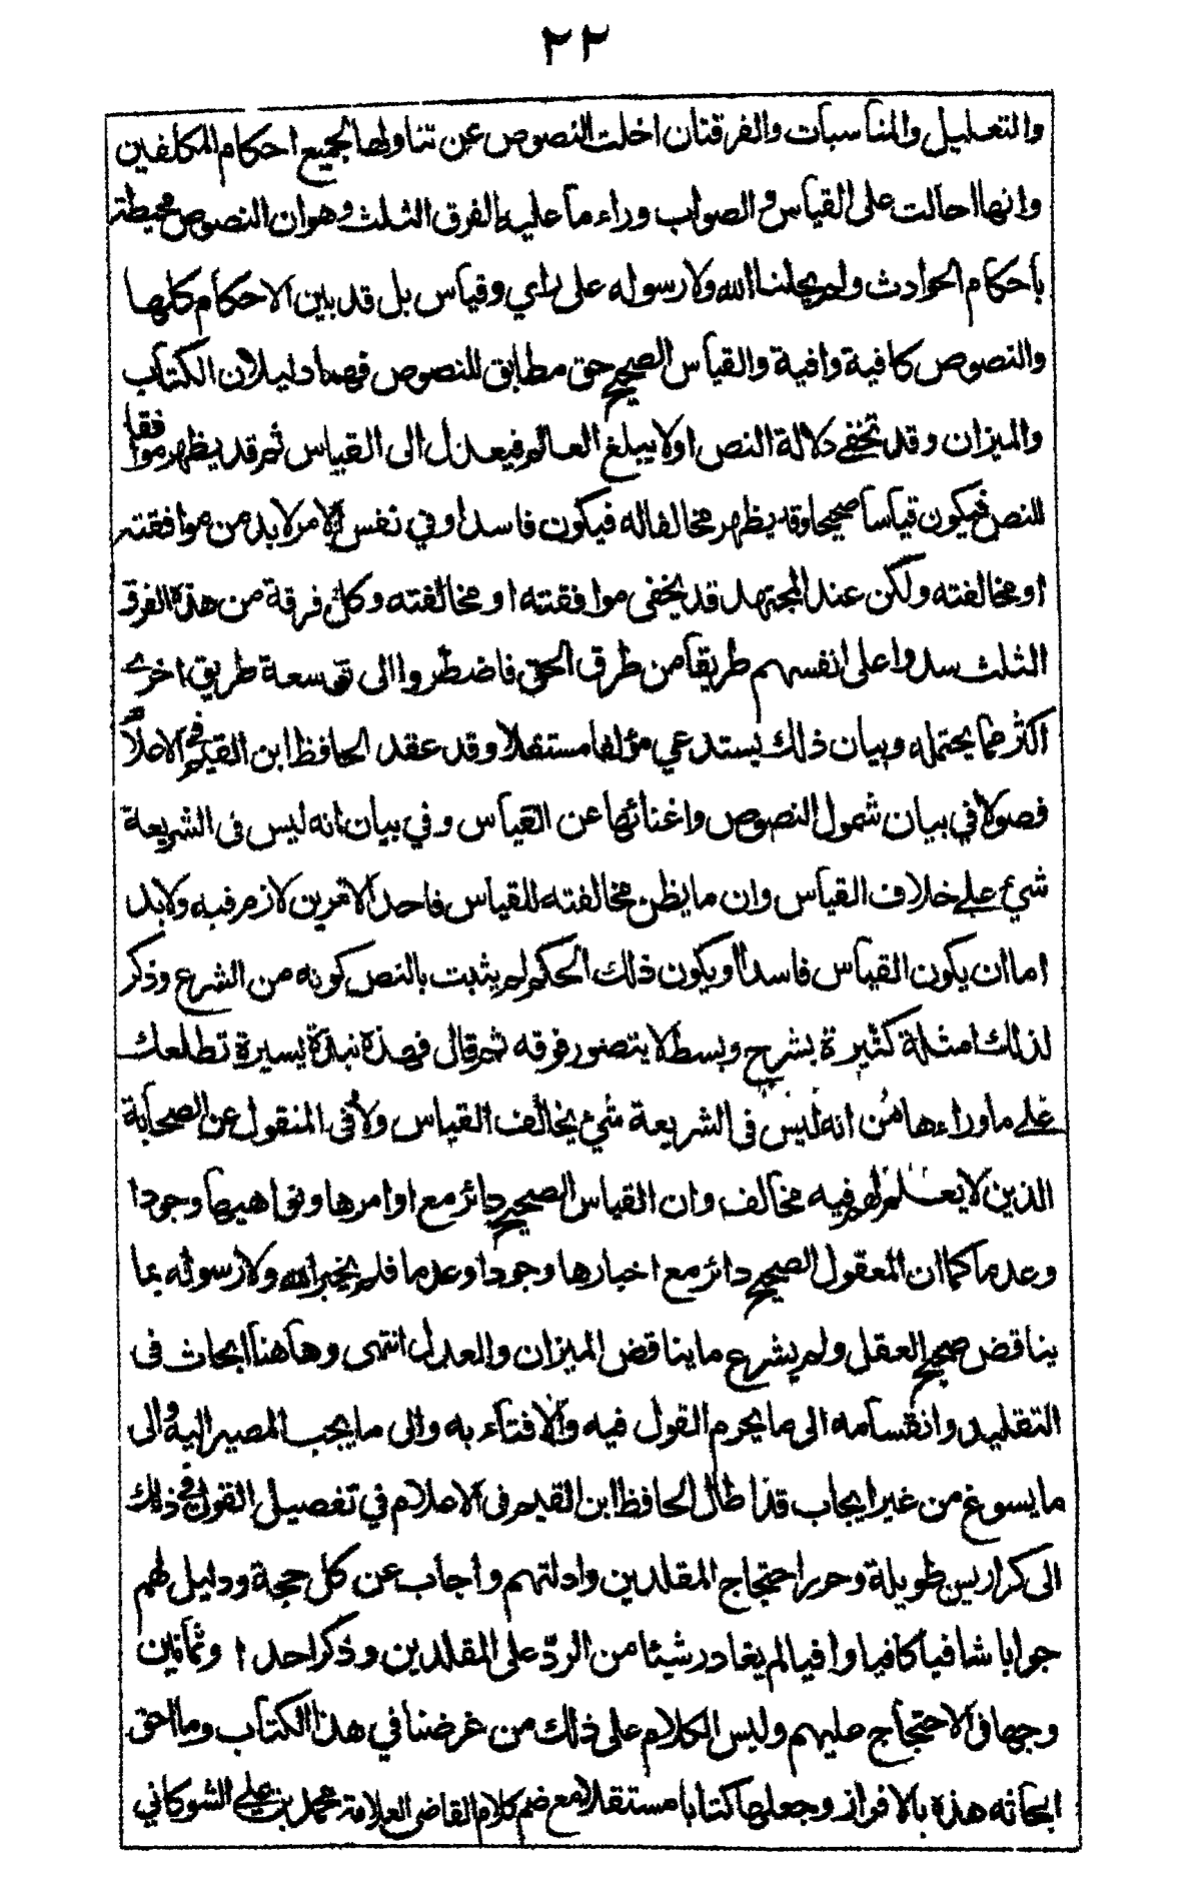 ٢٢
والتعليل والمناسبات والفرقتان اخلت النصوص عن تناولها لجميع احكام المكلفين
وانها احالت على القياس والصواب وراء ما عليه الفرق الثلث وهو ان النصوص محيطة
بأحكام الحوادث ولم يحلنا الله ولا رسوله على رأي وقياس بل قد بين الاحكام كلها
والنصوص كافية وافية والقياس الصحيح حق مطابق للنصوص فهما دليلان الكتاب
والميزان وقد تخفى دلالة النص اولا يبلغ العالم فيعدل الى القياس ثم قد يظهر موافقا
للنص فيكون قياسا صحيحا وقد يظهر مخالفا له فيكون فاسدا وفي نفس الامر لابد من موافقته
او مخالفته ولكن عند المجتهد قد يخفى موافقته او مخالفته وكل فرقة من هذه الفرق
الثلث سدوا على انفسهم طريقا من طرق الحق فاضطروا الى توسعة طريق اخرى
اكثر مما يحتمله وبيان ذلك يستدعي مؤلفا مستقلا وقد عقد الحافظ ابن القيم في الاعلام
فصولا في بيان شمول النصوص واغنائها عن القياس وفي بيان انه ليس فى الشريعة
شيء على خلاف القياس وان ما يظن مخالفته للقياس فاحد الامرين لازم فيه ولابد
اما ان يكون القياس فاسدا او يكون ذلك الحكم لم يثبت بالنص كونه من الشرع وذكر
لذلك امثلة كثيرة بشرح وبسط لا يتصور فوقه ثم قال فهذه نبذة يسيرة تطلعك
على ما وراءها من انه ليس فى الشريعة شيء يخالف القياس ولا فى المنقول عن الصحابة
الذين لا يعلم لهم فيه مخالف وان القياس الصحيح دائر مع اوامرها ونواهيها وجودا
وعدما كما ان المعقول الصحيح دائر مع اخبارها وجودا وعدما فلم يخبر الله ولا رسوله بما
يناقض صحيح العقل ولم يشرع ما يناقض الميزان والعدل انتهى وهاهنا ابحاث فى
التقليد وانقسامه الى ما يحرم القول فيه والافتاء به والى ما يجب المصير اليه والى
ما يسوغ من غير ايجاب قد اطال الحافظ ابن القيم فى الاعلام في تفصيل القول في ذلك
الى كراريس طويلة وحرر احتجاج المقلدين وادلتهم واجاب عن كل حجة ودليل لهم
جوابا شافيا كافيا وافيا لم يغادر شيئا من الردّ على المقلدين وذكر احدا وثمانين
وجها فى الاحتجاج عليهم وليس الكلام على ذلك من غرضنا في هذا الكتاب وما احق
ابحاثه هذه بالافراز وجعلها كتابا مستقلا مع ضم كلام القاضى العلامة محمد بن علي الشوكاني